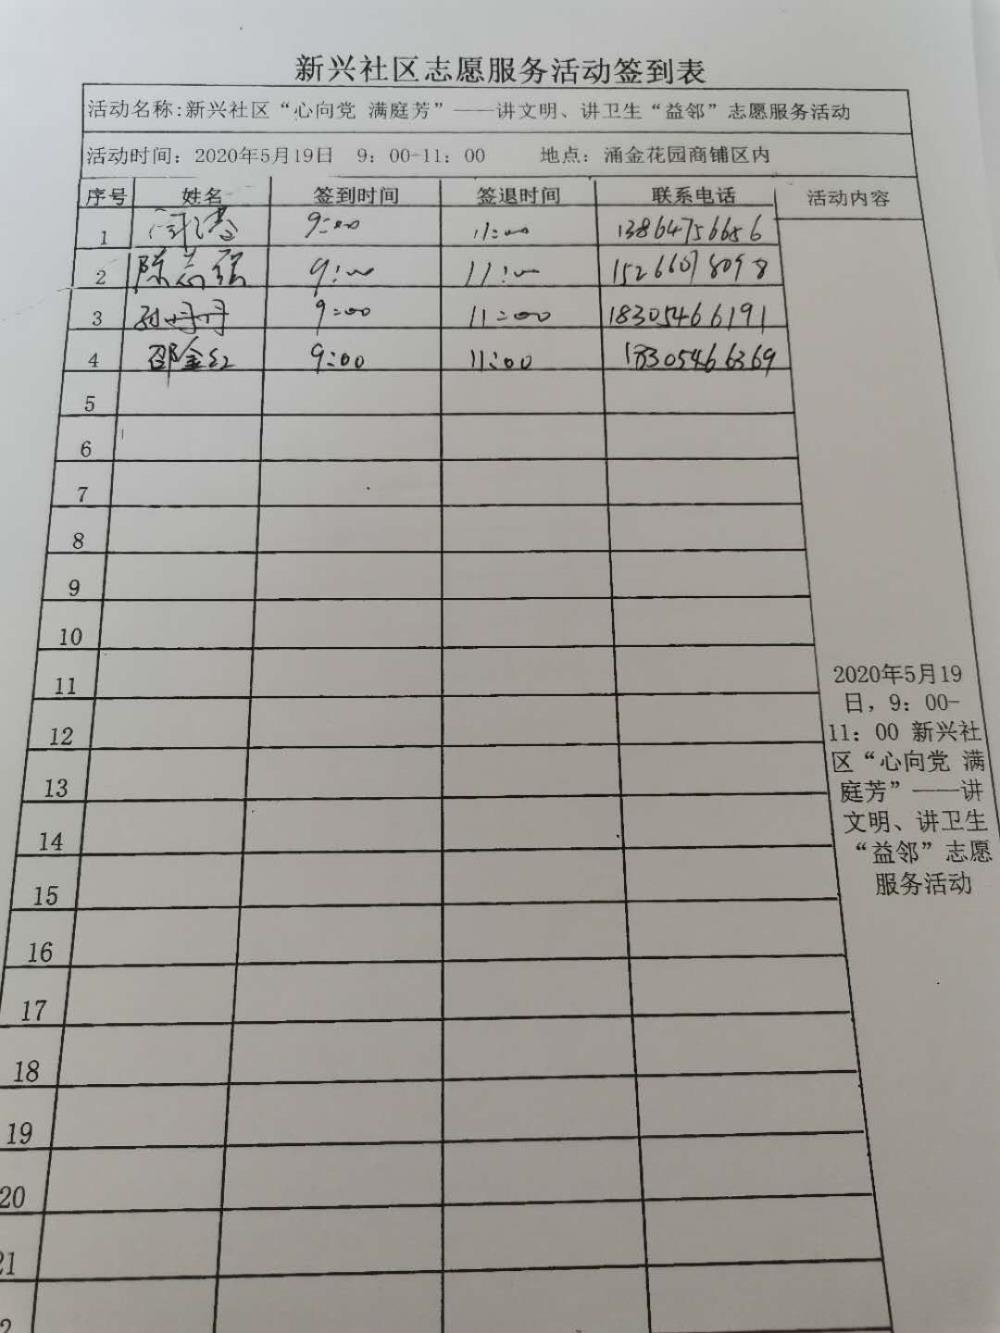 新兴社区志愿服务活动签到表
活动名称:新兴社区“心向党 满庭芳”——讲文明、讲卫生“益邻”志愿服务活动
活动时间：2020年5月19日 9：00-11：00 地点：涌金花园商铺区内
序号 姓名 签到时间 签退时间 联系电话 活动内容
1 9:00 11:00 13864756656
2 陈志强 9:00 11:00 15266078098
3 孙丹丹 9:00 11:00 18305466191
4 邵金红 9:00 11:00 18305466369
5
6
7
8
9
10
11
12
13
14
15
16
17
18
19
20
21
2020年5月19
日，9：00-
11：00 新兴社
区“心向党 满
庭芳”——讲
文明、讲卫生
“益邻”志愿
服务活动